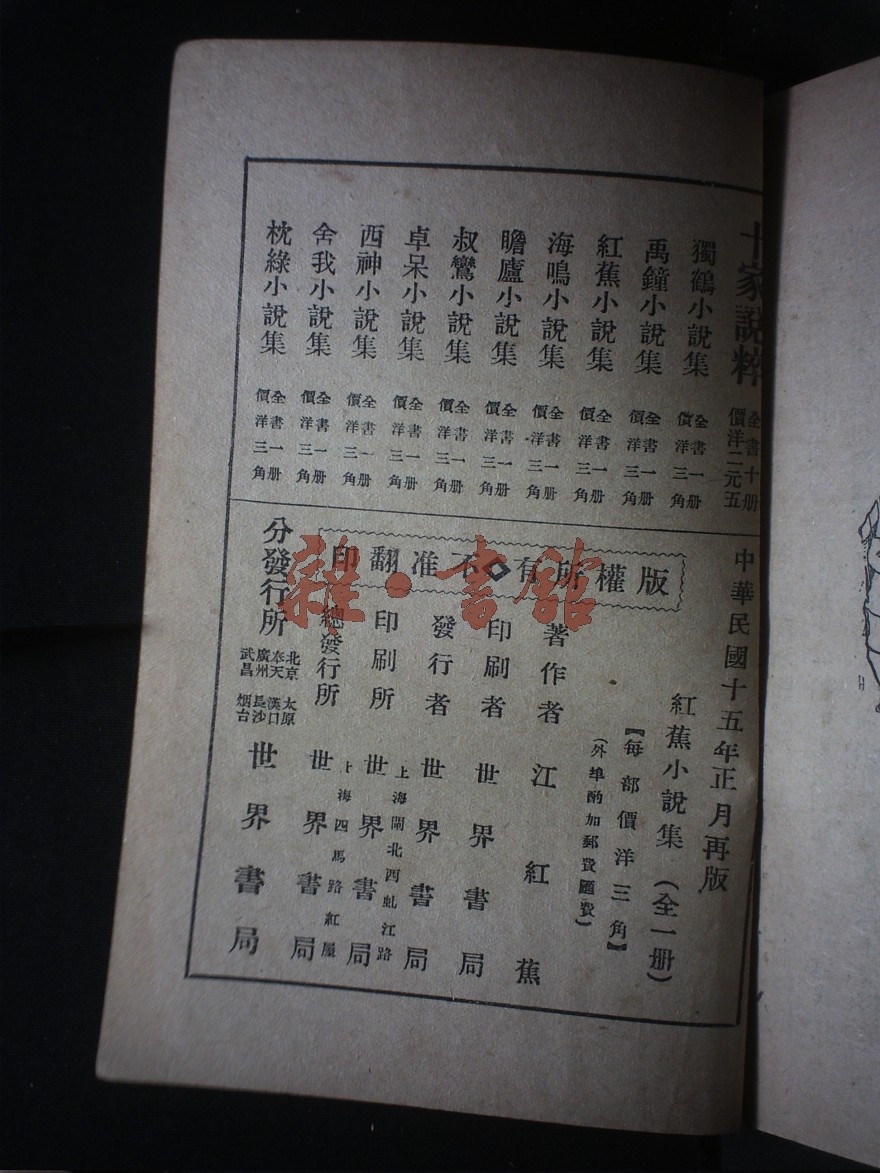 十家說粹 全書十册 價洋二元五
獨鶴小說集 全書一册 價洋三角
禹鐘小說集 全書一册 價洋三角
紅蕉小說集 全書一册 價洋三角
海鳴小說集 全書一册 價洋三角
瞻廬小說集 全書一册 價洋三角
叔鸞小說集 全書一册 價洋三角
卓呆小說集 全書一册 價洋三角
西神小說集 全書一册 價洋三角
舍我小說集 全書一册 價洋三角
枕綠小說集 全書一册 價洋三角
中華民國十五年正月再版
紅蕉小說集（全一册）
【每部價洋三角】
（外埠酌加郵費匯費）
版權所有◇不准翻印
著作者 江紅蕉
印刷者 世界書局
發行者 世界書局
印刷所 上海閘北西虬江路 世界書局
總發行所 上海四馬路紅屋 世界書局
分發行所 北京 奉天 廣州 武昌 太原 漢口 長沙 烟台 世界書局
雜·書館